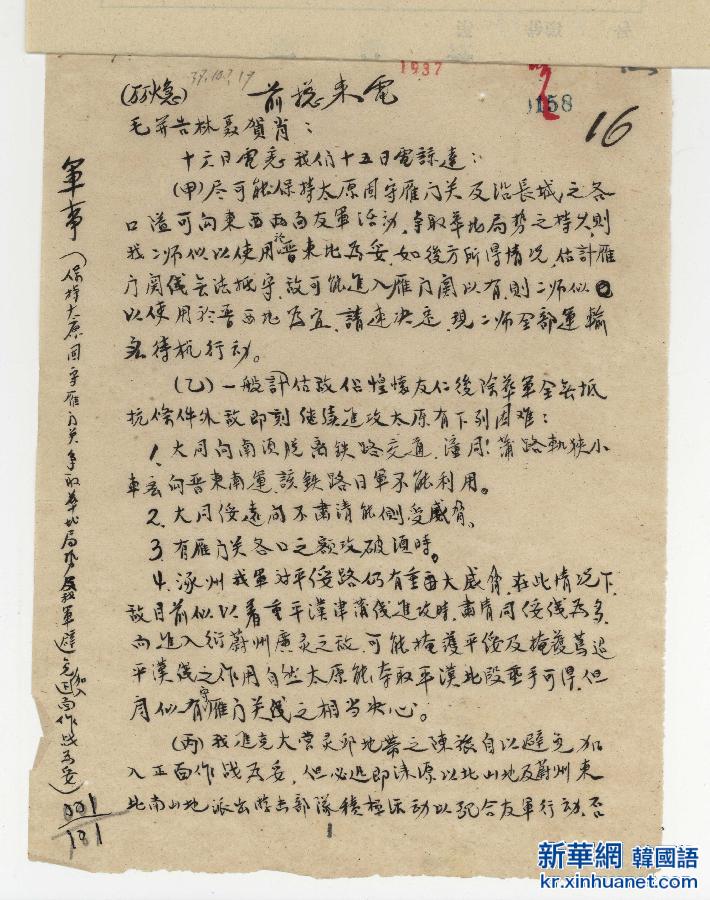 1937
37.10.17
0158
16
(万火急) 前总来电
毛并告林聂贺肖：
十六日电悉我们十五日电谅达：
(甲)尽可能保持太原固守雁门关及沿長城之各
口隘可向東西两面友軍活动，争取华北局势之持久，则
我二师似以使用於晋東北為妥，如後方所得情况，估計雁
门関线无法抵守，敌可能進入雁门関以有，则二师似
以使用於晋西北為宜，請速决定，現二师全部運輸
待机行动。
(乙)一般計估敌佔惶懷友仁後除葬軍全無抵
抗条件外敌即刻继续進攻太原有下列困难：
1. 大同向南須脱离铁路交通，潼同蒲路軌狭小
車 向晋東南運，該铁路日軍不能利用。
2. 大同绥遠向不肃清能側受威脅。
3. 有雁门关各口之额攻破須時。
4. 涿州我軍对平绥路仍有重大威脅，在此情况下，
敌目前似以着重平漢津浦线進攻時，肃清同绥线為多，
向進入衍蔚州廣灵之敌，可能掩護平绥及掩護
平漢线之作用自然太原能夺取平漢北段垂手可得，但
同似有守雁门关线之相当决心。
(丙)我進克大营灵邱地 之陳旅自以避免加
入正面作战為妥，但必迅即涞源以北山地及蔚州東
北南山地派出游击部隊積極活动以配合友軍行动，否
1
軍事(保持太原固守雁门关争取华北局势及我軍避免加入正面作战為妥)
001
101
新華網 韓國語
kr.xinhuanet.com